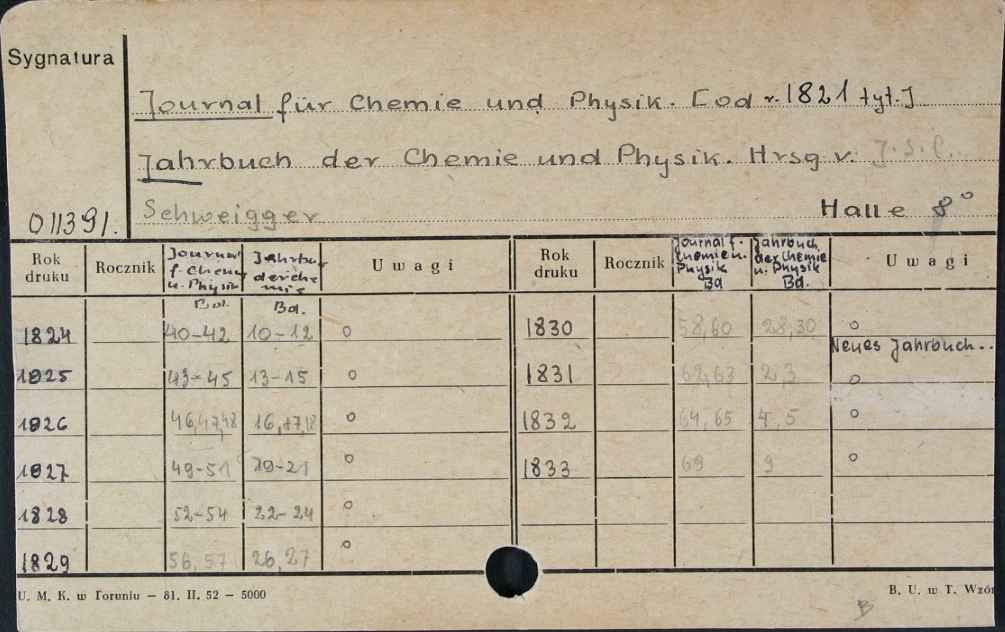 Sygnatura
Journal für Chemie und Physik. [od r. 1821 tyt.]
Jahrbuch der Chemie und Physik. Hrsg v. J. S. C.
011391. Schweigger Halle 8°
Rok druku Rocznik Journal f. Chemie u. Physik Bd. Jahrbu der Che mie Bd. Uwagi
1824 40-42 10-12 o
1825 43-45 13-15 o
1826 46,47,48 16,17,18 o
1827 49-51 19-21 o
1828 52-54 22-24 o
1829 56,57 26,27 o
Rok druku Rocznik Journal f. Chemie u. Physik Bd Jahrbuch der Chemie u. Physik Bd. Uwagi
1830 58,60 28,30 o
Neues Jahrbuch..
1831 62,63 2,3 o
1832 64,65 4,5 o
1833 69 9 o
U. M. K. w Toruniu — 81. II. 52 — 5000
B. U. w T. Wzór
B